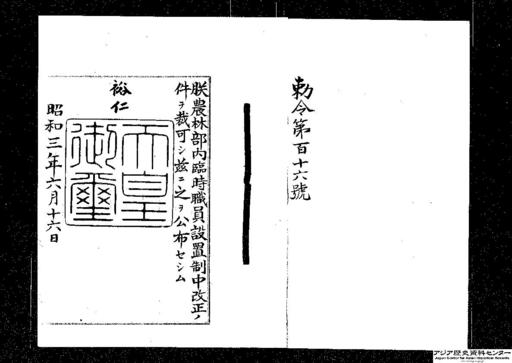 勅令第百十六號
朕農林部内臨時職員設置制中改正ノ
件ヲ裁可シ茲ニ之ヲ公布セシム
裕仁
天皇
御璽
昭和三年六月十六日
アジア歴史資料センター
Japan Center for Asian Historical Records